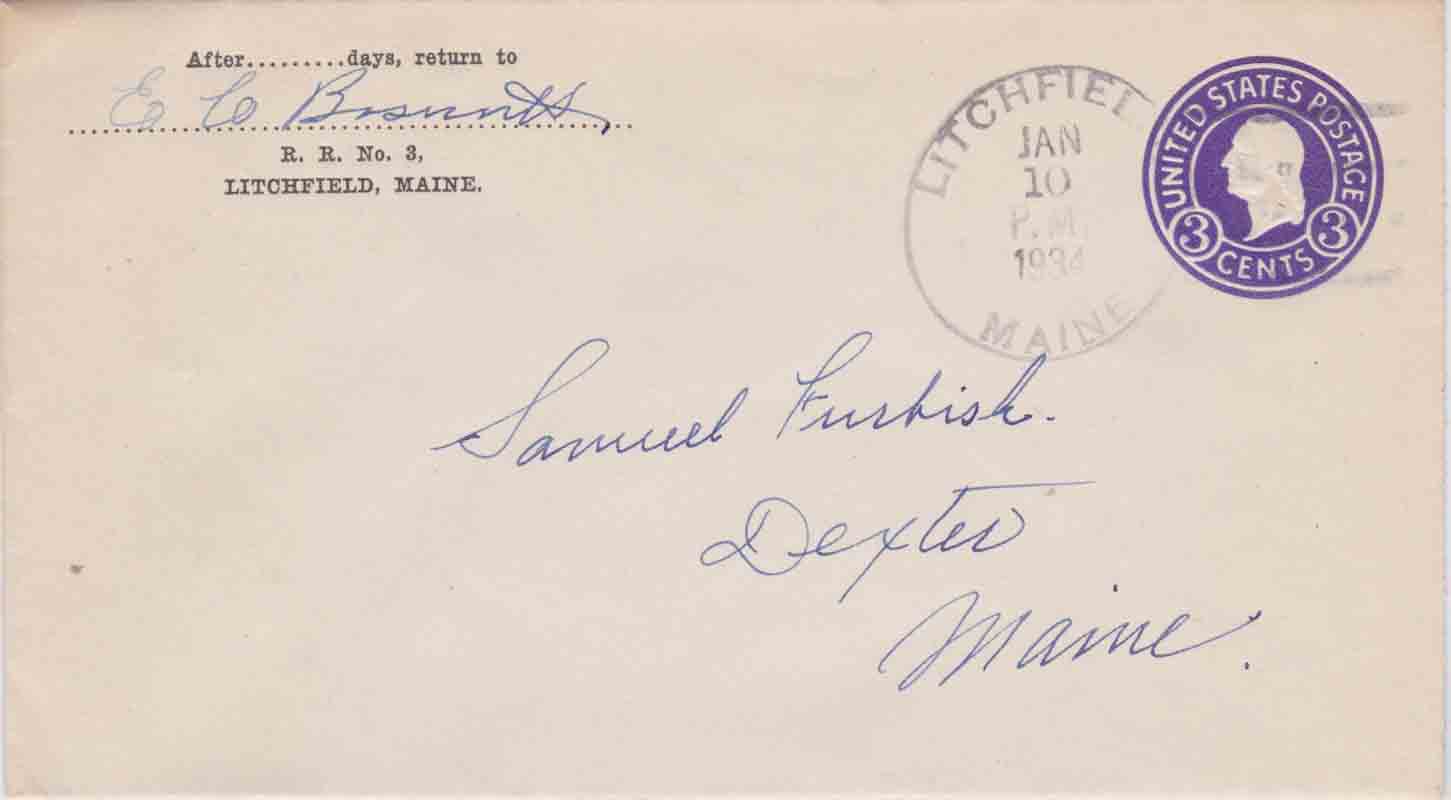 After.........days, return to
E C
R. R. No. 3,
LITCHFIELD, MAINE.
LITCHFIEL
JAN
10
P.M.
1934
MAINE
UNITED STATES POSTAGE
3 CENTS 3
Samuel Furbish.
Dexter
Maine.